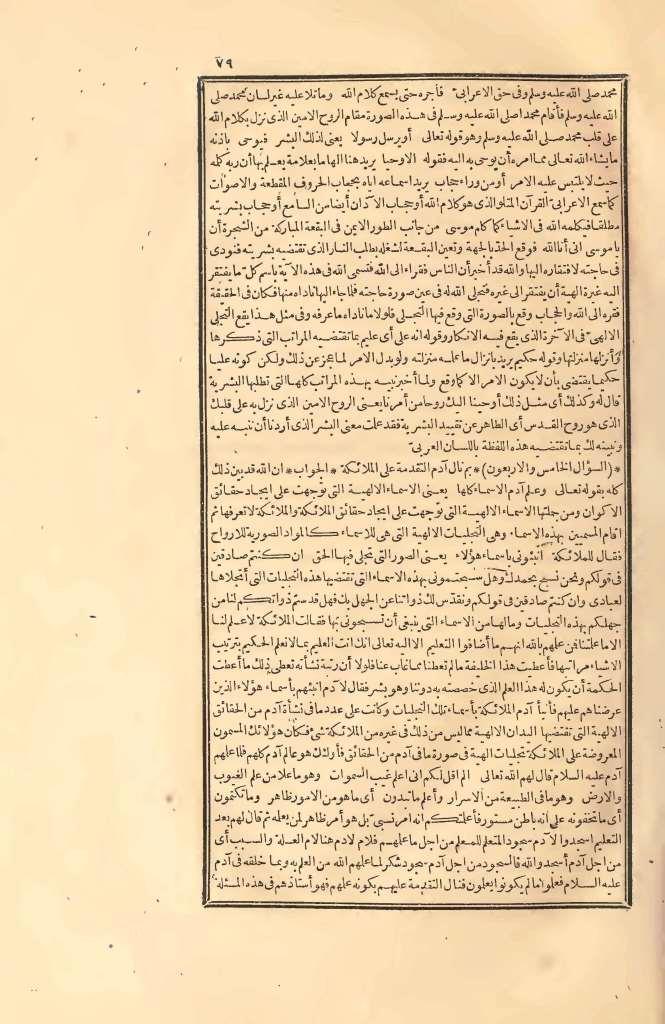 ٧٩
محمد صلى الله عليه وسلم وفى حق الاعرابى فأجره حتى يسمع كلام الله وما تلاه عليه غير لسان محمد صلى
الله عليه وسلم فأقام محمدا صلى الله عليه وسلم فى هذه الصورة مقام الروح الامين الذى نزل بكلام الله
على قلب محمد صلى الله عليه وسلم وهو قوله تعالى أو يرسل رسولا يعنى لذلك البشر فيوحى باذنه
ما يشاء الله تعالى مما أمره أن يوحى به اليه فقوله الا وحيا يريد هنا الهاما بعلامة يعلم بها أن ربه كلمه
حيث لا يلتبس عليه الامر أو من وراء حجاب يريد اسماعه اياه بحجاب الحروف المقطعة والاصوات
كما سمع الاعرابى القرآن المتلو الذى هو كلام الله أو حجاب الآذان أيضا من السامع أو حجاب بشريته
مطلقا فيكلمه الله فى الاشياء كما كلم موسى من جانب الطور الايمن فى البقعة المباركة من الشجرة أن
ياموسى انى أنا الله فوقع الحد بالجهة وتعين البقعة لشغله بطلب النار الذى تقتضيه بشريته فنودى
فى حاجته لافتقاره اليها والله قد أخبر أن الناس فقراء الى الله فتسمى الله فى هذه الآية باسم كل ما يفتقر
اليه غيرة الهية أن يفتقر الى غيره فتجلى الله له فى عين صورة حاجته فلما جاء اليها ناداه منها فكان فى الحقيقة
فقره الى الله والحجاب وقع بالصورة التى وقع فيها التجلى فلولا ما ناداه ما عرفه وفى مثل هذا يقع التجلى
الالهى فى الآخرة الذى يقع فيه الانكار وقوله انه على أى عليم بما تقتضيه المراتب التى ذكرها
وأنزلها منزلتها وقوله حكيم يريد بانزال ما علمه منزلته ولو بدل الامر لما عجز عن ذلك ولكن كونه عليا
حكيما يقتضى بأن لا يكون الامر الا كما وقع ولما أخبر نبيه بهذه المراتب كلها التى تطلبها البشرية
قال له وكذلك أى مثل ذلك أوحينا اليك روحا من أمرنا يعنى الروح الامين الذى نزل به على قلبك
الذى هو روح القدس أى الطاهر عن تقييد البشرية فقد علمت معنى البشر الذى أردنا أن ننبه عليه
ونبينه لك بما تقتضيه هذه اللفظة باللسان العربى
*(السؤال الخامس والاربعون)* بم نال آدم التقدمة على الملائكة * الجواب * ان الله قد بين ذلك
كله بقوله تعالى وعلم آدم الاسماء كلها يعنى الاسماء الالهية التى توجهت على ايجاد حقائق
الاكوان ومن جملتها الاسماء الالهية التى توجهت على ايجاد حقائق الملائكة والملائكة لا تعرفها ثم
أقام المسمين بهذه الاسماء وهى التجليات الالهية التى هى للاسماء كالمواد الصورية للارواح
فقال للملائكة أنبئونى بأسماء هؤلاء يعنى الصور التى تجلى فيها الحق ان كنتم صادقين
فى قولكم ونحن نسبح بحمدك وهل سبحتمونى بهذه الاسماء التى تقتضيها هذه التجليات التى أتجلاها
لعبادى وان كنتم صادقين فى قولكم ونقدس لك ذواتنا عن الجهل بك فهل قدستم ذواتكم لنا من
جهلكم بهذه التجليات وما لها من الاسماء التى ينبغى أن تسبحونى بها فقالت الملائكة لا علم لنا
الا ما علمتنا فمن علمهم بالله انهم ما أضافوا التعليم الا اليه تعالى انك أنت العليم بما لا نعلم الحكيم بترتيب
الاشياء مراتبها فأعطيت هذا الخليفة ما لم تعطنا مما غاب عنا فلولا أن رتبة نشأته تعطى ذلك ما أعطت
الحكمة أن يكون له هذا العلم الذى خصصته به دوننا وهو بشر فقال لآدم أنبئهم بأسماء هؤلاء الذين
عرضناهم عليهم فأنبأ آدم الملائكة بأسماء تلك التجليات وكانت على عدد ما فى نشأة آدم من الحقائق
الالهية التى تقتضيها اليدان الالهية مما ليس من ذلك فى غيره من الملائكة شئ فكان هؤلائك المسمون
المعروضة على الملائكة تجليات الهية فى صورة ما فى آدم من الحقائق فأولئك هو عالم آدم كلهم فلما علمهم
آدم عليه السلام قال لهم الله تعالى ألم أقل لكم انى أعلم غيب السموات وهو ما علا من علم الغيوب
والارض وهو ما فى الطبيعة من الاسرار وأعلم ما تبدون أى ما هو من الامور ظاهر وما تكتمون
أى ما تخفونه على انه باطن مستور فأعلمتكم انه أمر نسبى بل هو أمر ظاهر لمن يعلمه ثم قال لهم بعد
التعليم اسجدوا لآدم سجود المتعلم للمعلم من اجل ما علمهم فلام لآدم هنا لام العلة والسبب أى
من اجل آدم أسجدوا لله فالسجود من اجل آدم سجود شكر لما علمهم الله من العلم به وبما خلقه فى آدم
عليه السلام فعلموا ما لم يكونوا يعلمون فنال التقدمة عليهم بكونه علمهم فهو أستاذهم فى هذه المسئلة